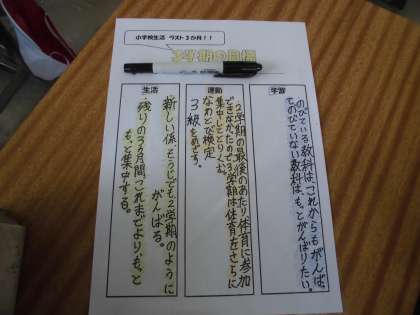 小学校生活 ラスト3か月!!
3学期の目標
学習
のびている教科はこれからもがんばり、
てのびていない教科は、もっとがんばりたい。
運動
2学期の最後のあたり体育に参加
できなかたので3学期は体育をさらに
集中してとりくむ。
なわとび検定
3級をめざす。
生活
新しい係そうじでも2学期のように
がんばる。
残りの3カ月間、これまでより、もっと
もっと集中する。